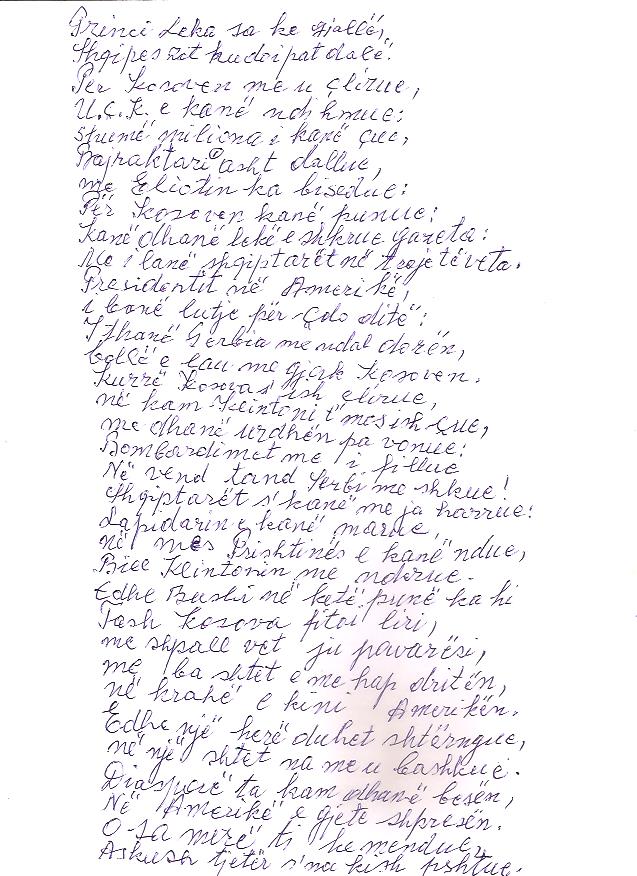 Princi Leka sa ke gjallë,
Shqipes zot kudo i pat dalë.
Për Kosoven me u çlirue,
U.Ç.K. e kanë ndihmue:
shumë miliona i kanë çue,
Bajraktari asht dallue,
me Eliotin ka bisedue:
Për Kosoven kanë punue:
Kanë dhanë lekë e shkrue gazeta:
Me i lanë shqiptarët në trojet e veta.
Presidentit në Amerikë,
i bonë lutje për çdo ditë:
I thanë Serbia me ndal dorën,
bollë e lau me gjak Kosoven.
Kurrë Kosova s'ish çlirue,
në kam Klintoni t'mos ish çue,
me dhanë urdhën pa vonue:
Bombardimet me i fillue
Në vend tand Serbi me shkue!
Shqiptarët s'kanë me ja harrue:
Lapidarin e kanë marue,
në mes Prishtinës e kanë ndue,
Bill Klintonin me nderue.
Edhe Bushi në ketë punë ka hi
Tash Kosova fitoi liri,
me shpall vet ju pavarësi,
me ba shtet e me hap dritën,
në krahë e kini Amerikën.
Edhe një herë duhet shtërngue,
në një shtet na me u bashkue.
Diasporë ta kam dhanë besën,
Në Amerikë e gjete shpresën.
O sa mirë ti ke mendue,
Askush tjetër s'na kish pshtue.